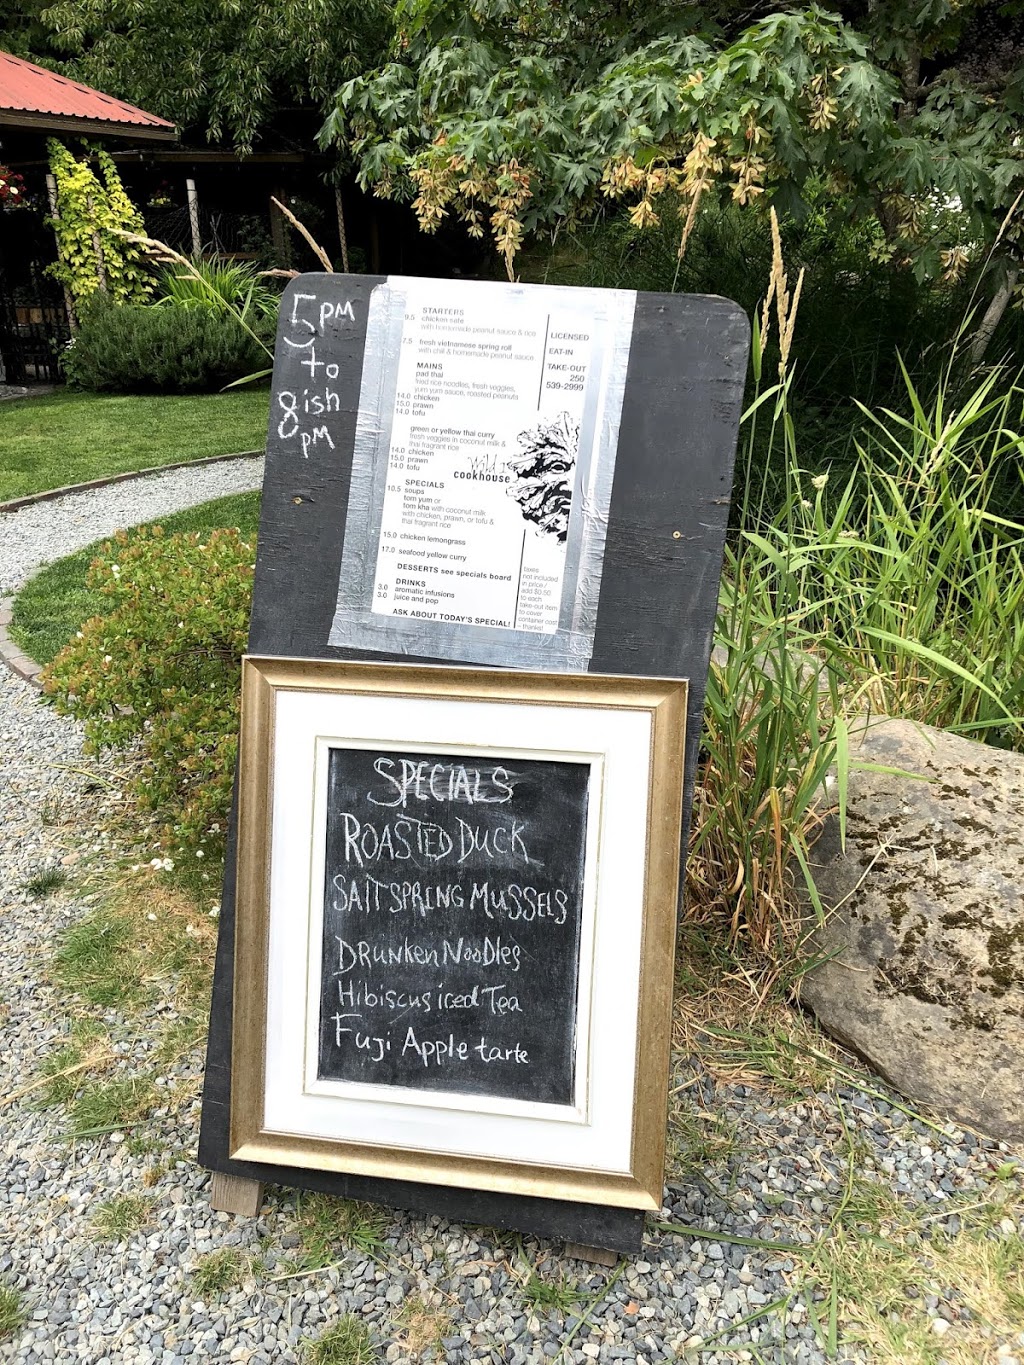 5 PM
to
8ish
PM
STARTERS
9.5 chicken sate
with homemade peanut sauce & rice
7.5 fresh vietnamese spring roll
with chili & homemade peanut sauce
MAINS
pad thai
fried rice noodles, fresh veggies,
yum yum sauce, roasted peanuts
14.0 chicken
15.0 prawn
14.0 tofu
green or yellow thai curry
fresh veggies in coconut milk &
thai fragrant rice
14.0 chicken
15.0 prawn
14.0 tofu
SPECIALS
10.5 soups
tom yum or
tom kha with coconut milk
with chicken, prawn, or tofu &
thai fragrant rice
15.0 chicken lemongrass
17.0 seafood yellow curry
DESSERTS see specials board
DRINKS
3.0 aromatic infusions
3.0 juice and pop
ASK ABOUT TODAY'S SPECIAL!
LICENSED
EAT-IN
TAKE-OUT
250
539-2999
Wild
cookhouse
taxes
not included
in price /
add $0.50
to each
take-out item
to cover
container cost
– thanks!
SPECIALS
ROASTED DUCK
SALTSPRING MUSSELS
DRUNKEN NOODLES
Hibiscus iced Tea
Fuji Apple tarte